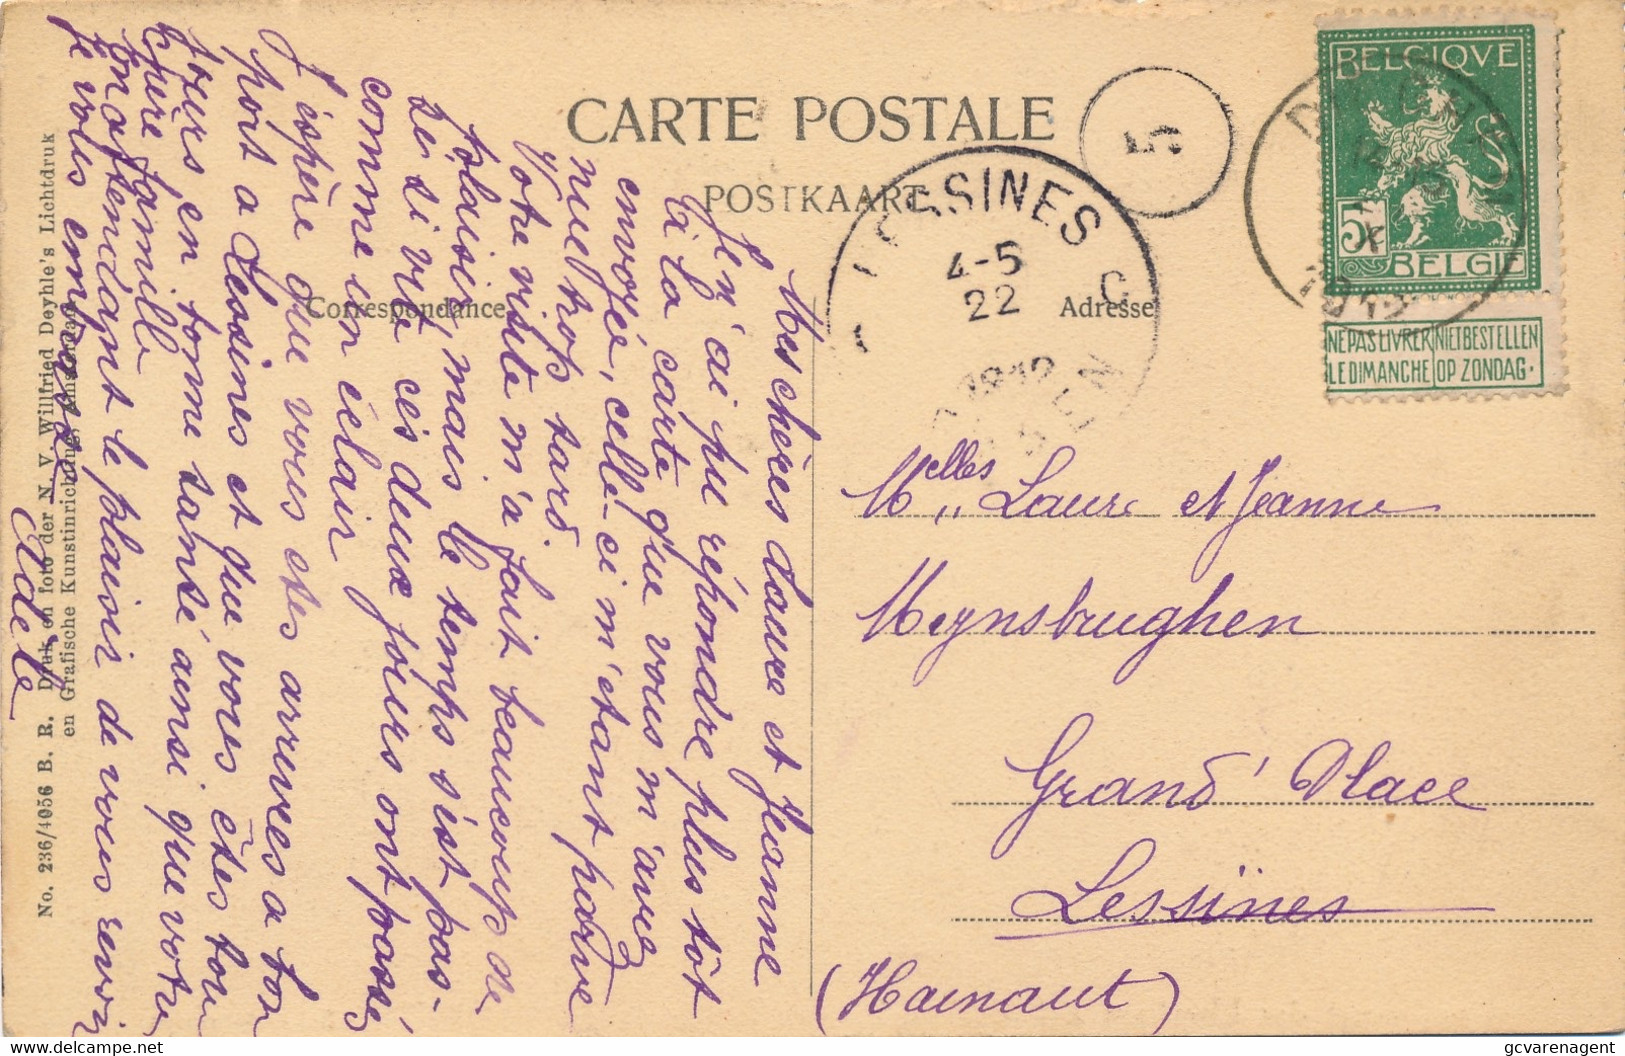 CARTE POSTALE
POSTKAART
Correspondance
Adresse
BELGIQVE
5
BELGIE
NE PAS LIVRER NIET BESTELLEN
LE DIMANCHE OP ZONDAG.
LESSINES
4-5
22
5
Mes chères Laure et Jeanne
Je n'ai pu répondre plus tôt
à la carte que vous m'avez
envoyée, celle-ci m'étant parve
nue trop tard.
Votre visite m'a fait beaucoup de
plaisir, mais le temps s'est pas-
sé si vite ces deux jours ont passé
comme un éclair
J'espère que vous êtes arrivées a bon
port a Lessines et que vous êtes tou
jours en bonne santé ainsi que votre
chère famille
En attendant le plaisir de vous revoir
je vous embrasse
Adèle
Melles Laure et Jeanne
Meynsbrughen
Grand' Place
Lessines
(Hainaut)
No. 236/4056 B. R. Druk en foto der N. V. Willfried Deyhle's Lichtdruk
en Grafische Kunstinrichting, Amsterdam
© gcvarenagent